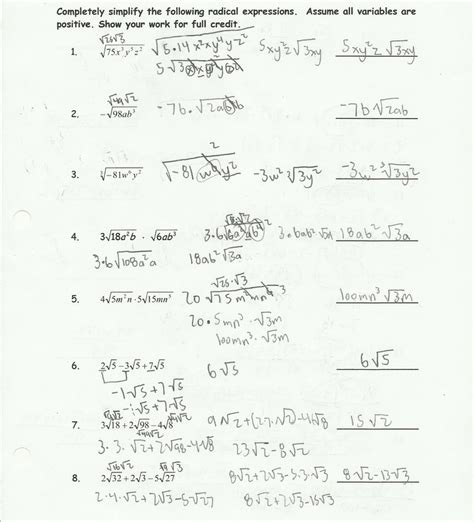 Completely simplify the following radical expressions. Assume all variables are
positive. Show your work for full credit.
√25√3
1. √75x³y⁵z² √5·14x²xy⁴yz² 5xy²z√3xy 5xy²z√3xy
√49√2
2. -√98ab³ -7b·√2ab -7b√2ab
3. ∛-81w⁶y² -3w²∛3y² -3w²∛3y²
4. 3√18a²b · √6ab³ 18ab²√3a
3·6√108a²a 18ab²√3a
√25·√3
5. 4√5m²n·5√15mn⁵ 100mn³√3m
20·5mn³·√3m
100mn³·√3m
6. 2√5-3√5+7√5 6√5 6√5
-1√5+7√5
-1√5+7√5
7. 3√18+2√98-4√8 9√2+(2·7√2)-4√8 15√2
3·3·√2+2√98-4√8 23√2-8√2
√16√2 √9√3
8. 2√32+2√3-5√27 8√2+2√3-5·3√3 8√2-13√3
2·4·√2+2√3-5√27 8√2+2√3-15√3